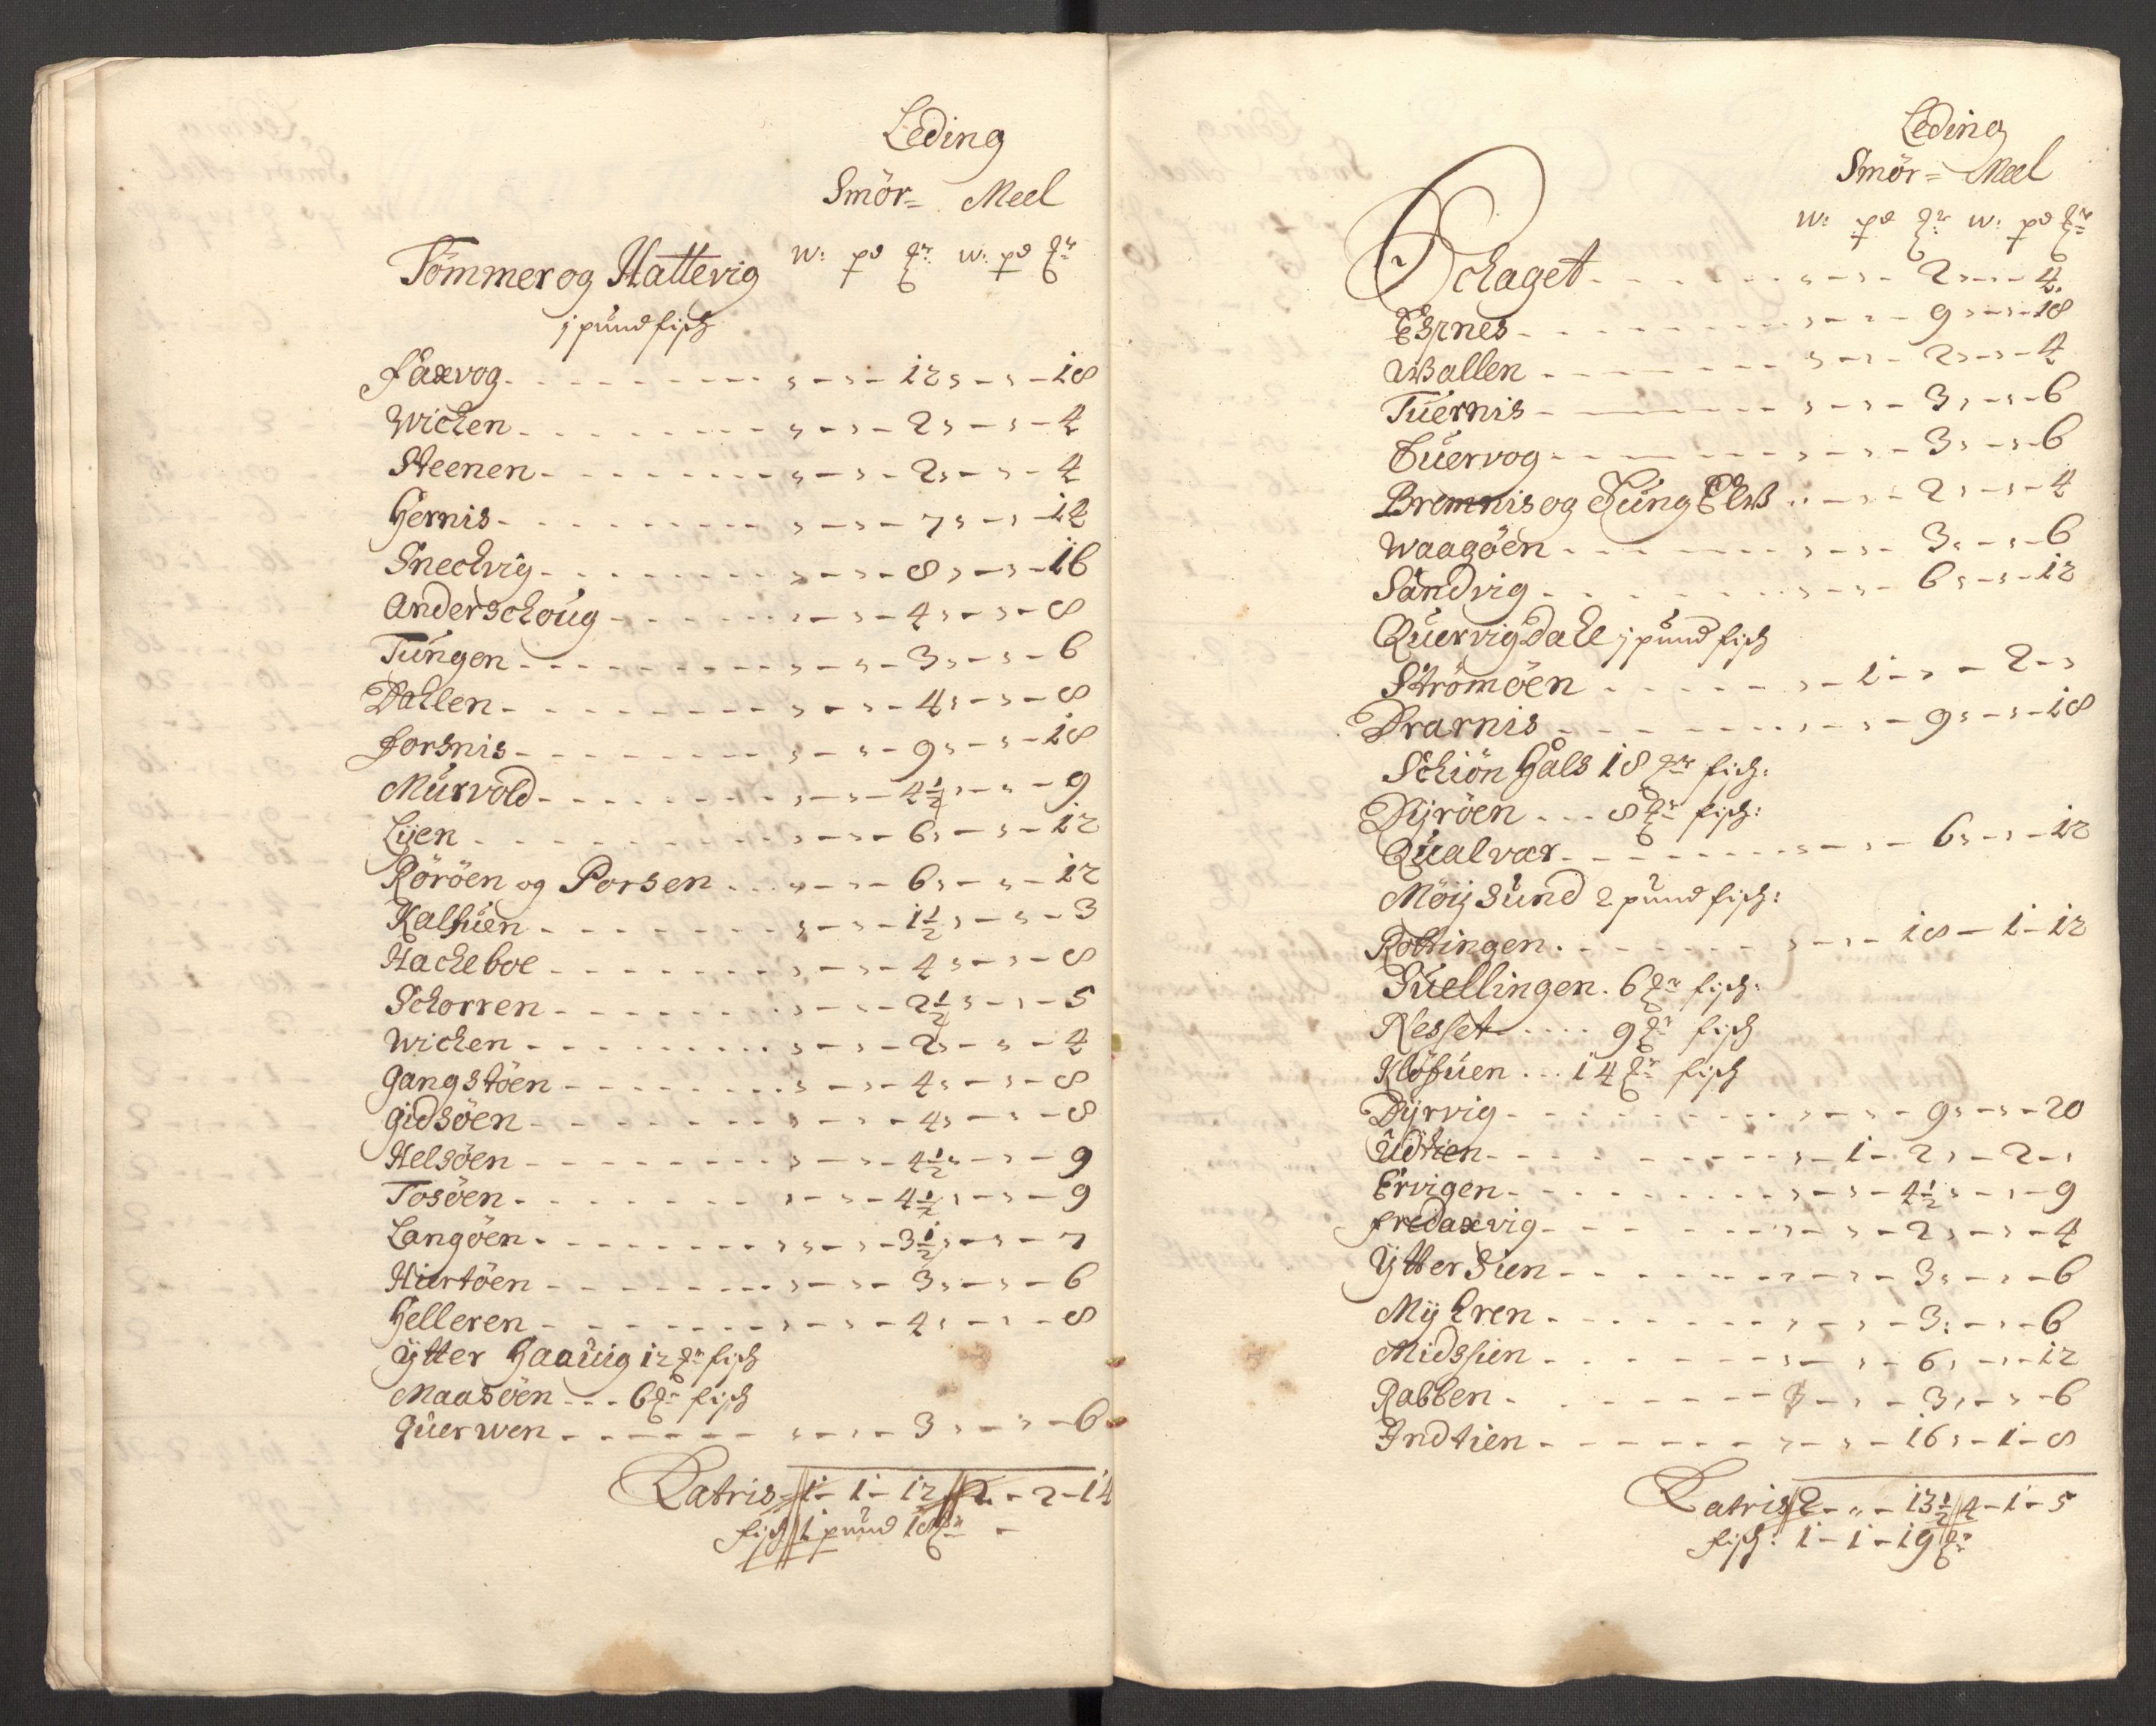 Leding
Smör= Meel
w: pd ₰r w: pd ₰r
Tömmer og Hattevig
j pund fisch
Faxvog - - - - - - - - - „ - „ - 12 „ - „ - 18
Wichen - - - - - - - - - „ - „ - 2 „ - „ - 4
Steenen - - - - - - - - „ - „ - 2 „ - „ - 4
Hernis - - - - - - - - - „ - „ - 7 „ - „ - 14
Snechvig - - - - - - - - „ - „ - 8 „ - „ - 16
Anderschoug - - - - - - „ - „ - 4 „ - „ - 8
Tungen - - - - - - - - - „ - „ - 3 „ - „ - 6
Dahlen - - - - - - - - - „ - „ - 4 „ - „ - 8
Forsnis - - - - - - - - „ - „ - 9 „ - „ - 18
Murvold - - - - - - - - „ - „ - 4½ „ - „ - 9
Lijen - - - - - - - - - „ - „ - 6 „ - „ - 12
Röröen og Porsen . . . „ - „ - 6 „ - „ - 12
Kalhuen - - - - - - - - „ - „ - 1½ „ - „ - 3
Hacheboe - - - - - - - „ - „ - 4 „ - „ - 8
Schorren - - - - - - - „ - „ - 2½ „ - „ - 5
Wichen - - - - - - - - „ - „ - 2 „ - „ - 4
Gangstöen - - - - - - - „ - „ - 4 „ - „ - 8
Gidsöen - - - - - - - - „ - „ - 4 „ - „ - 8
Helsöen - - - - - - - - „ - „ - 4½ „ - „ - 9
Tosöen - - - - - - - - „ - „ - 4½ „ - „ - 9
Langöen - - - - - - - - „ - „ - 3½ „ - „ - 7
Hiertöen - - - - - - - „ - „ - 3 „ - „ - 6
Helleren - - - - - - - „ - „ - 4 „ - „ - 8
Ÿtter Haavig 12 ₰r fisch
Maasöen - - - 6 ₰r fisch
Querwen - - - - - - „ - „ - 3 „ - „ - 6
Latris - 1 - 1 - 12 // 2 - 2 - 14
fisch 1 pund 18 ₰r -
Leding
Smör= Meel
w: pd ₰r w: pd ₰r
Schaget - - - - - - - „ - „ - 2 „ - „ - 4.
Espnes - - - - - - - - „ - „ - 9 „ - „ - 18
Wallen - - - - - - - - „ - „ - 2 „ - „ - 4
Tuernis - - - - - - - „ - „ - 3 „ - „ - 6
Tuervog - - - - - - - „ - „ - 3 „ - „ - 6
Bremnis og Jung Elw „ - „ - 2 „ - „ - 4
Waagöen - - - - - - - „ - „ - 3 „ - „ - 6
Sandvig - - - - - - - „ - „ - 6 „ - „ - 12
Quervigdahl j pund fisch
Strömöen - - - - - - „ - 1 - „ - 2 - „
Drarnis - - - - - - - „ - „ - 9 „ - „ - 18
Schiön Hals 18 ₰r fisch:
Dÿröen . . . 8 ₰r fisch:
Qualvær - - - - - - - „ - „ - 6 „ - „ - 12
Möÿsund 2 pund fisch:
Rottingen - - - - - - „ - „ - 18 - 1 - 12
Suellingen. 6 ₰r fisch:
Nesset . . . . 9 ₰r fisch
Klöfuen . . . 14 ₰r fisch
Dÿrvig - - - - - - - - „ - „ - 9 „ - „ - 20
Udtien - - - - - - - - „ - 1 - 2 „ - 2 - „
Ervigen - - - - - - - „ - „ - 4½ „ - „ - 9
Fredaxvig - - - - - - „ - „ - 2 „ - „ - 4
Ÿtter Sien - - - - - - „ - „ - 3 „ - „ - 6
Mÿhren - - - - - - - „ - „ - 3 „ - „ - 6
Midssien - - - - - - - „ - „ - 6 „ - „ - 12
Rabben - - - - - - - „ - „ - 3 „ - „ - 6
Indtien - - - - - - - „ - „ - 16 „ - 1 - 8
Latris // 2 - „ - 13½ // 4 - 1 - 5
fisch: 1 - 1 - 19 ₰r